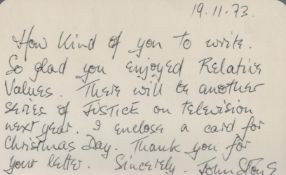 19.11.73.
How kind of you to write.
So glad you enjoyed Relative
Values. There will be another
series of JUSTICE on television
next year. I enclose a card for
Christmas Day. Thank you for
your letter. Sincerely. John Stone